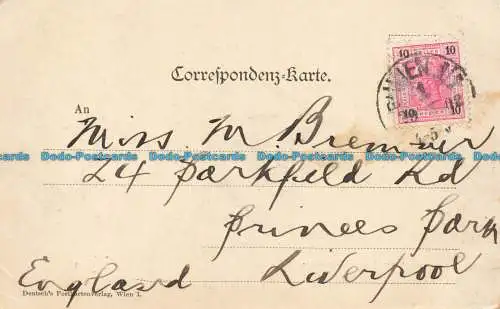 10 10
Correspondenz-Karte.
10 10
An
Miss M. Bremner
Dodo-Postcards Dodo-Postcards Dodo-Postcards Dodo-Postcards Dodo-Postcards
24 Parkfield Rd
Princes Park
England Liverpool
Deutsch's Postkartenverlag, Wien I.